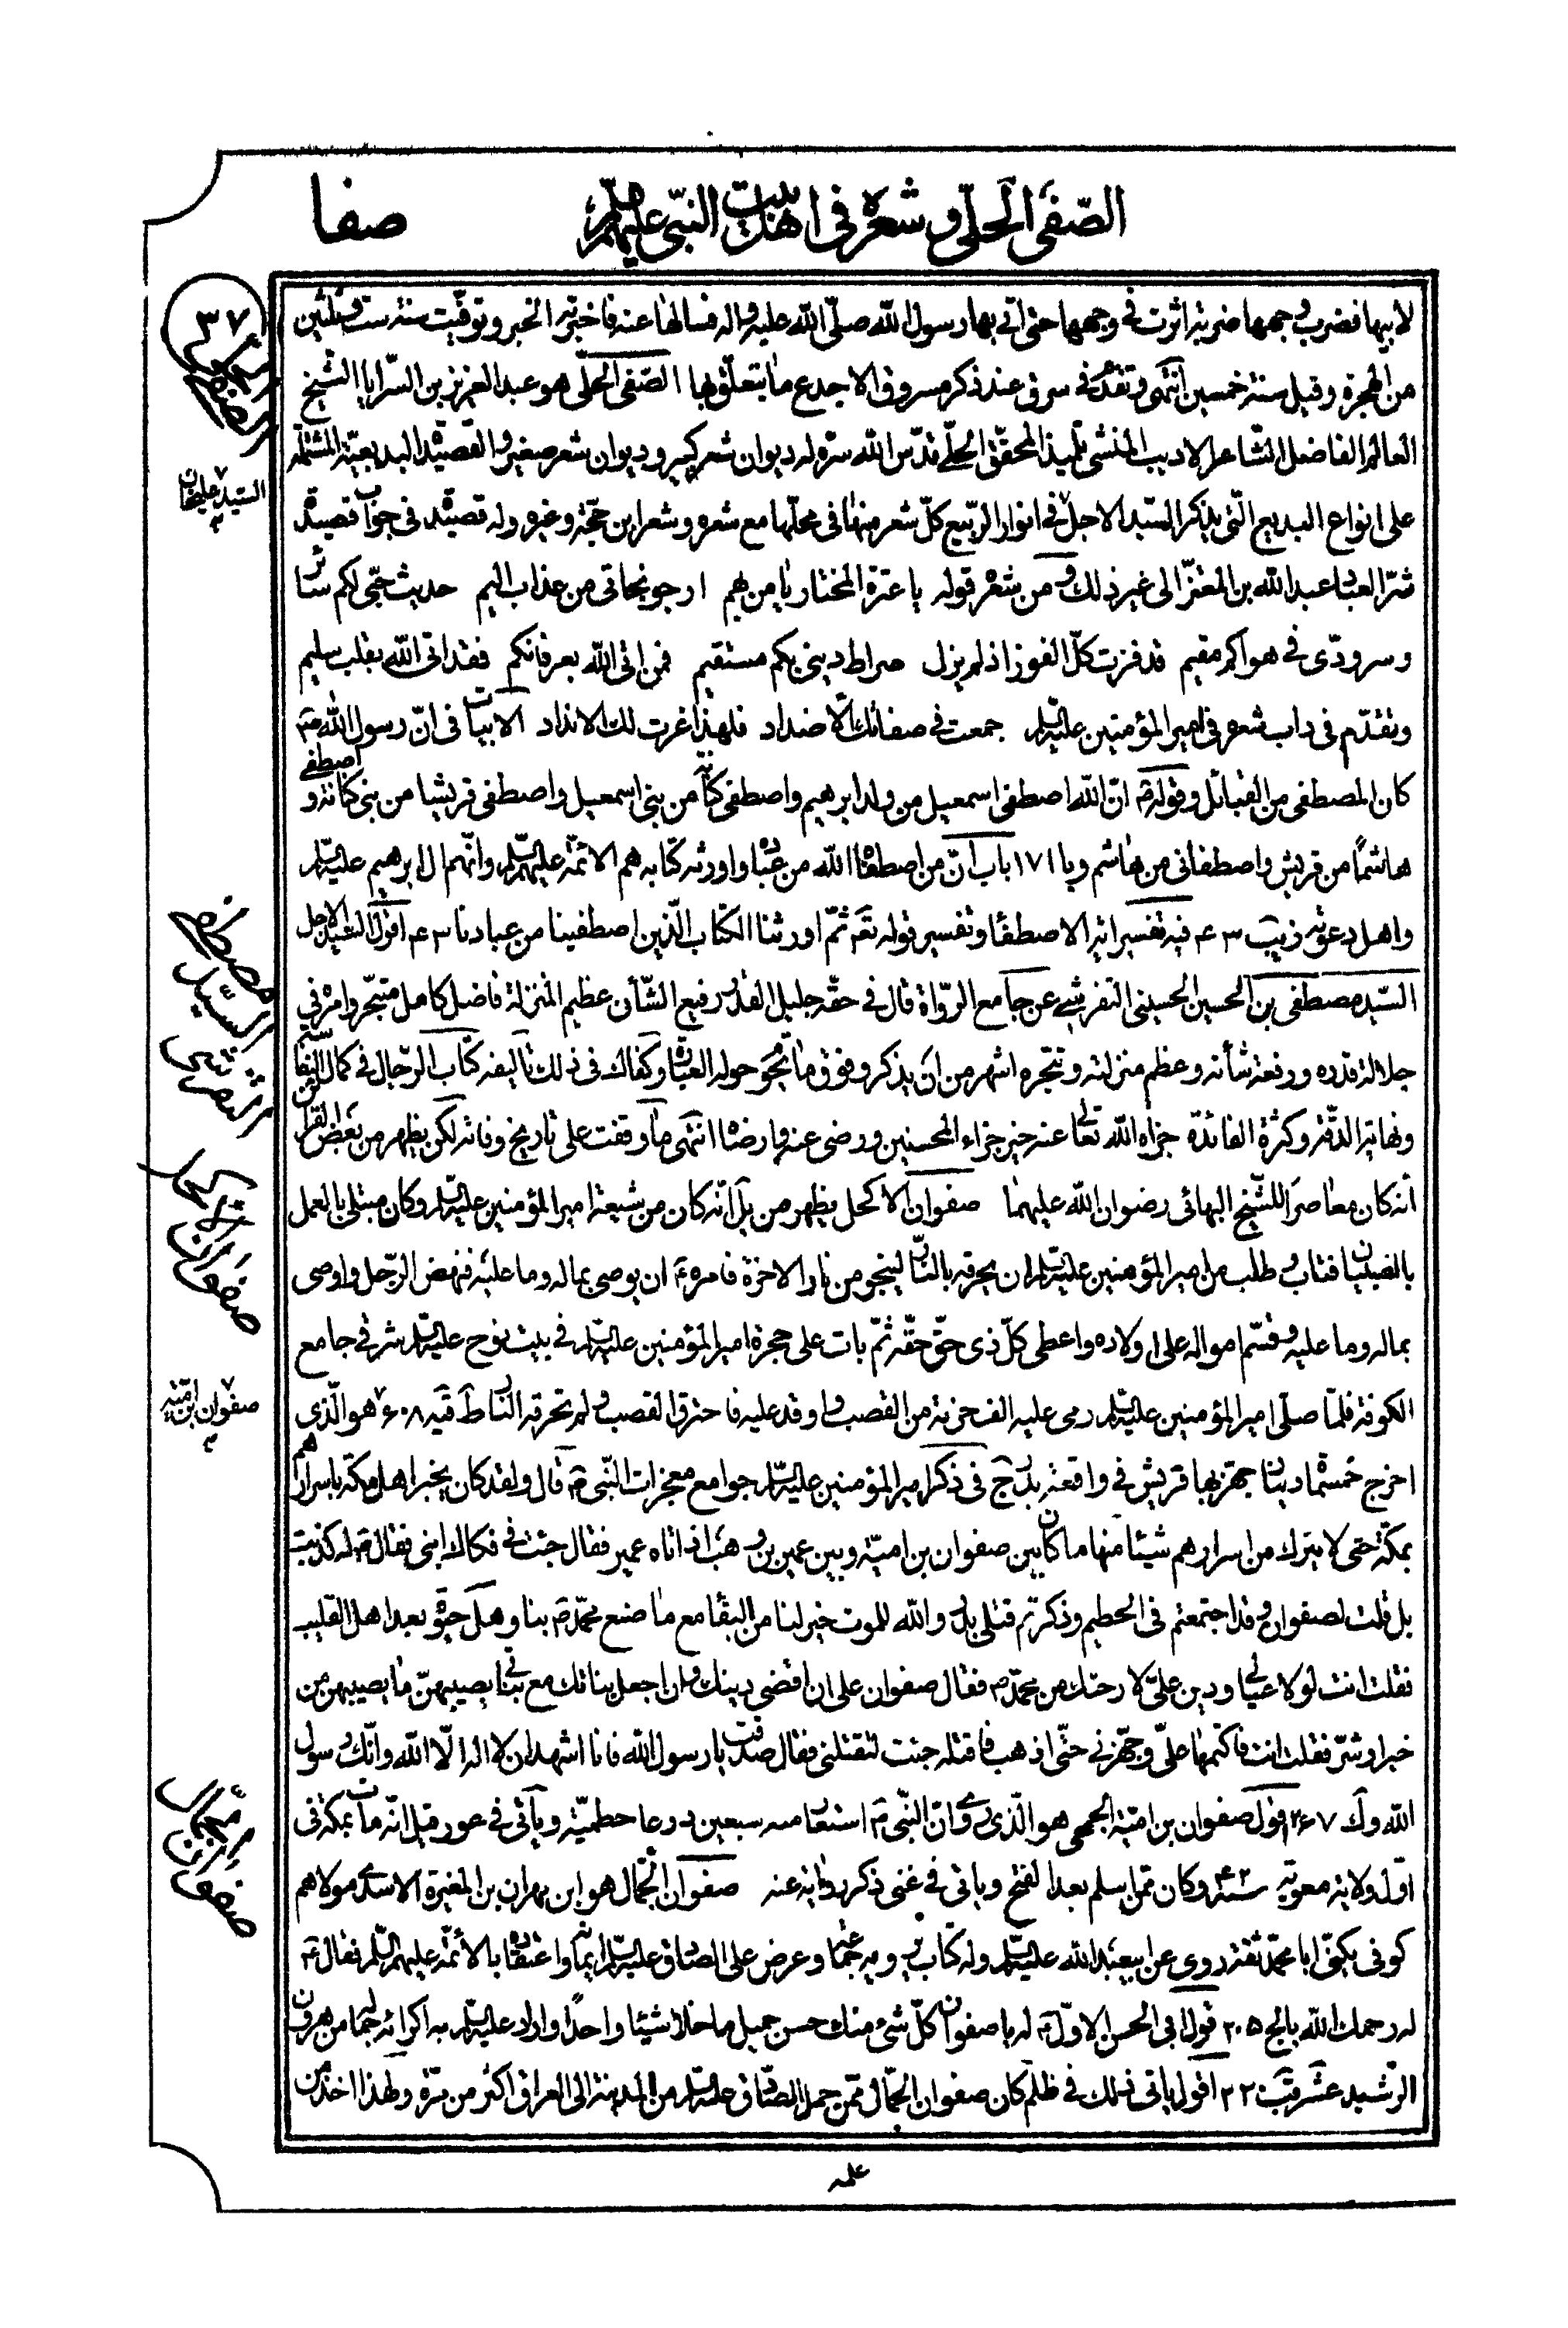 الصّفى الحلّى و شعره فى اهل بيت النبّى عليهم السّلم
صفا
٣٧
لأبيها فضرب وجهها ضربة اثرت فى وجهها حتى اتى بها رسول الله صلّى الله عليه واله فسالها عنه فاخبرته الخبر وتوفّيت سنة ست وثلثين
من الهجرة وقيل سنة خمسين انتهى وتقدّم فى سرق عند ذكر مسروق الاجدع ما يتعلّق بها الصّفى الحلّى هو عبد العزيز بن السّرايا الشيخ
العالم الفاضل الشّاعر الاديب المنشى تلميذ المحقّق الحلّے قدّس الله سرّه له ديوان شعر كبير و ديوان شعر صغير و القصيدة البديعيّة المشتملة
على انواع البديع الّتى يذكر السّيد الاجل فى انوار الرّبيع كلّ شعر منها فى محلّها مع شعره و شعر ابن حجّة وغيره وله قصيدة فى جواب قصيدة
شرّ العباد عبد الله بن المعتزّ الى غير ذلك و من شعره قوله يا عترة المختار يا من بهم ارجو نجاتى من عذاب اليم حديث حبّى لكم سائر
و سر ودّى فى هواكم مقيم قد فزت كلّ الفوز اذ لم يزل صراط دينى بكم مستقيم فمن اتى الله بعرفانكم فقد اتى الله بقلب سليم
وتقدّم فى داب شعره فى امير المؤمنين عليه السّلم جمعت فى صفاتك الأضداد فلهذا غرت لك الانداد الابيات فى انّ رسول الله ص
كان المصطفى من القبائل وقوله ص انّ الله اصطفى اسمعيل من ولد ابرهيم واصطفى كنانة من بنى اسمعيل واصطفى قريشا من بنى كنانة و اصطفے
هاشمًا من قريش واصطفانى من هاشم و يا ١٧١ باب انّ من اصطفاه الله من عباده واورثه كتابه هم الائمّة عليهم السّلم وانّهم ال ابرهيم عليه السّلم
واهل دعوته ز يب ٤٣ فيه تفسير اية الاصطفا وتفسير قوله تعم ثمّ اورثنا الكتاب الّذين اصطفينا من عبادنا ٤٣ اقول السّيّد الاجل
السّيد مصطفى بن الحسين الحسينى التفرشے عن جامع الرّواة قال فى حقّه جليل القدر رفيع الشّأن عظيم المنزلة فاضل كامل متبحّر وامره فى
جلالة قدره و رفعة شأنه و عظم منزلته و تبحّره اشهر من ان يذكر و فوق ما تحوم حوله العبارة وكفاك فى ذلك تأليفه كتاب الرّجال فى كمال النفاسة
ونهاية الدقّة وكثرة الفائدة جزاه الله تعالى عنه خير جزاء المحسنين و رضى عنه و ارضاه انتهى ما وقفت على تاريخ وفاته لكن يظهر من بعض القرائن
أنه كان معاصرا للشّيخ البهائى رضوان الله عليهما صفوان الاكحل يظهر من يل انّه كان من شيعة امير المؤمنين عليه السّلم وكان مبتلى بالعمل
بالصبيان فتاب و طلب من امير المؤمنين عليه السّلم ان يحرقه بالنّار لينجو من نار الاخرة فامره ع ان يوصى بماله وما عليه فنهض الرّجل واوصى
بماله وما عليه و قسّم امواله على اولاده واعطى كلّ ذى حقّ حقّه ثمّ بات على حجرة امير المؤمنين عليه السّلم فى بيت نوح عليه السّلم شرقى جامع
الكوفة فلمّا صلّى امير المؤمنين عليه السّلم رمى عليه الف حزمة من القصب و اوقد عليه فاحترق القصب و لم تحرقه النار ط قيه ٦٠٨ هو الّذى
اخرج خمسمأة دينار يجهز بها قريش فى واقعة بدر ج فى ذكر امير المؤمنين عليه السّلم جوامع معجزات النّبى ص قال ولقد كان يخبر اهل مكّة باسرارهم
بمكّة حتى لا يترك من اسرارهم شيئا منها ما كان بين صفوان بن اميّة و بين عمير بن وهب اذ اتاه عمير فقال جئت فى فكاك ابنى فقال ص له كذبت
بل قلت لصفوان و قد اجتمعتم فى الحطيم وذكرتم قتلى بدر و الله للموت خير لنا من البقا مع ما صنع محمّد ص بنا وهل حيوة بعد اهل القليب
فقلت انت لولا عيالى ودين علىّ لارحتك من محمّد ص فقال صفوان على ان اقضى دينك وان اجعل بناتك مع بناتى يصيبهنّ ما يصيبهن من
خير او شرّ فقلت انت فاكتمها علىّ وجهّزنى حتّى اذهب فاقتله جئت لتقتلنى فقال صدقت يا رسول الله فانا اشهد ان لا اله الّا الله وانّك رسول
الله و ك ٢٦٧ اقول صفوان بن اميّة الجمحى هو الّذى روى انّ النّبى ص استعار منه سبعين درعا حطميّة و يأتى فى عور قيل انّه مات بمكة فى
اوّل ولاية معوية سنة ٤٢ وكان ممّن اسلم بعد الفتح و ياتى فى غنى ذكر رواية عنه صفوان الجمّال هو ابن مهران بن المغيرة الاسدى مولاهم
كوفى يكنّى ابا محمّد ثقة روى عن ابيعبد الله عليه السّلم وله كتاب يرويه جماعة و عرض على الصّادق عليه السّلم ايمانه واعتقاده بالأئمّة عليهم السّلم فقال ع
له رحمك الله يا لج ٢٠٥ قول ابى الحسن الاوّل ع له يا صفوان كلّ شىء منك حسن جميل ما خلا شيئا واحدًا واراد عليه السّلم به اكرائه جماله من هرون
الرّشيد عشر قيب ٢٢ اقول ياتى ذلك فى ظلم كان صفوان الجمّال ممّن حمل الصّادق عليه السّلم من المدينة الى العراق اكثر من مرّة ولهذا اخذ من
السيّد عليخان
السيّد مصطفى
التفرشى
صفوان الاكحل
صفوان بن اميّة
صفوان الجمّال
علمه